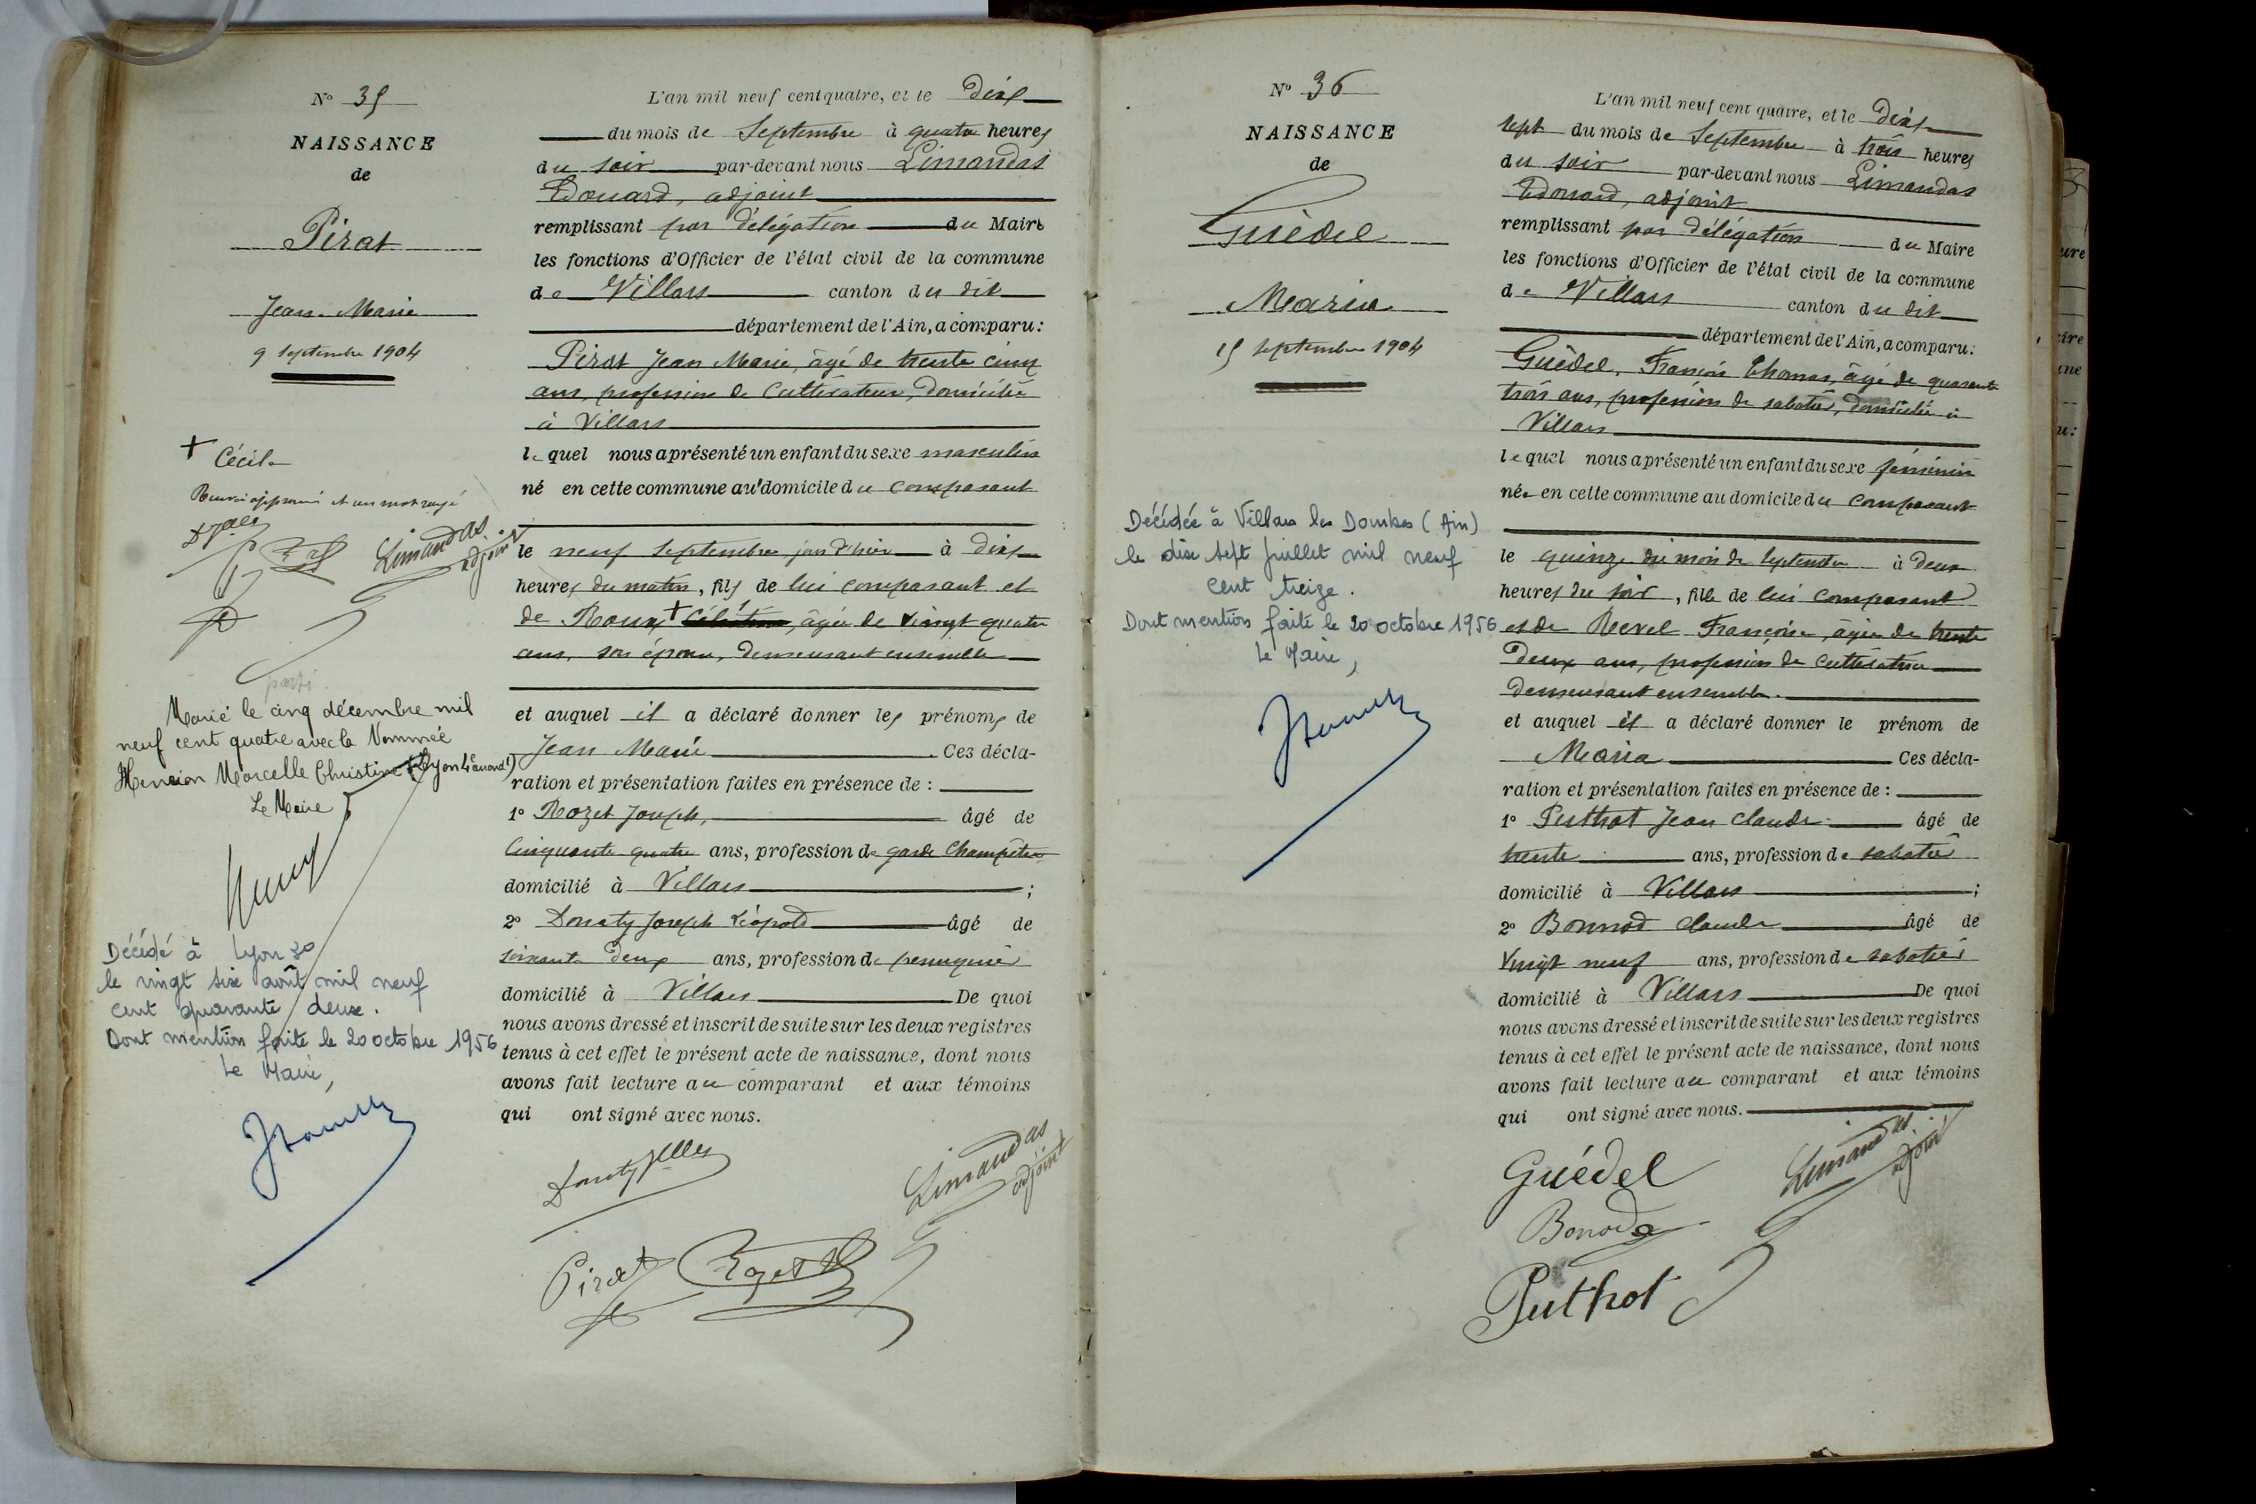 N° 35
NAISSANCE
de
Pirat
Jean-Marie
9 septembre 1904
+ Cécile
Renvoi approuvé et un mot rayé
Limandas
adjoint
Marié le cinq décembre mil
neuf cent quatre avec la Nommée
Marcelle Christine (Lyon 4e arrondt)
Le Maire
Décédé à Lyon 3e
le vingt six août mil neuf
cent quarante deux.
Dont mention faite le 20 octobre 1956
Le Maire,
L'an mil neuf cent quatre, et le Dix
du mois de Septembre à quatre heures
du soir par-devant nous Limandas
Edouard, adjoint
remplissant par délégation du Maire
les fonctions d'Officier de l'état civil de la commune
de Villars canton du dit
département de l'Ain, a comparu:
Pirat Jean Marie, âgé de trente cinq
ans, profession de Cultivateur, domicilié
à Villars
lequel nous a présenté un enfant du sexe masculin
né en cette commune au domicile du comparant
le neuf septembre jour d'hier à dix
heures du matin, fils de lui comparant et
de Roux + âgée de vingt quatre
ans, son épouse, demeurant ensemble
et auquel il a déclaré donner les prénoms de
Jean Marie. Ces décla-
ration et présentation faites en présence de :
1° Rozet Joseph, âgé de
Cinquante quatre ans, profession de garde Champêtre
domicilié à Villars ;
2° Donaty Joseph Léopold âgé de
soixante deux ans, profession de perruquier
domicilié à Villars De quoi
nous avons dressé et inscrit de suite sur les deux registres
tenus à cet effet le présent acte de naissance, dont nous
avons fait lecture au comparant et aux témoins
qui ont signé avec nous.
Limandas
adjoint
Pirat Rozet
N° 36
NAISSANCE
de
Guédel
Maria
15 septembre 1904
Décédée à Villars les Dombes (Ain)
le dix sept juillet mil neuf
cent treize.
Dont mention faite le 20 octobre 1956
Le Maire,
L'an mil neuf cent quatre, et le Dix
sept du mois de Septembre à trois heures
du soir par-devant nous Limandas
Edouard, adjoint
remplissant par délégation du Maire
les fonctions d'Officier de l'état civil de la commune
de Villars canton du dit
département de l'Ain, a comparu:
Guédel, François Thomas, âgé de quarante
trois ans, profession de sabotier, domicilié à
Villars
lequel nous a présenté un enfant du sexe féminin
née en cette commune au domicile du comparant
le quinze du mois de septembre à deux
heures du soir, fille de lui comparant
et de Revel Françoise, âgée de trente
deux ans, profession de cultivatrice
demeurant ensemble.
et auquel il a déclaré donner le prénom de
Maria Ces décla-
ration et présentation faites en présence de :
1° Puthot Jean Claude âgé de
trente ans, profession de sabotier
domicilié à Villars ;
2° Bonnod Claude âgé de
Vingt neuf ans, profession de sabotier
domicilié à Villars De quoi
nous avons dressé et inscrit de suite sur les deux registres
tenus à cet effet le présent acte de naissance, dont nous
avons fait lecture au comparant et aux témoins
qui ont signé avec nous.
Guédel
Limandas
adjoint
Bonod
Puthot